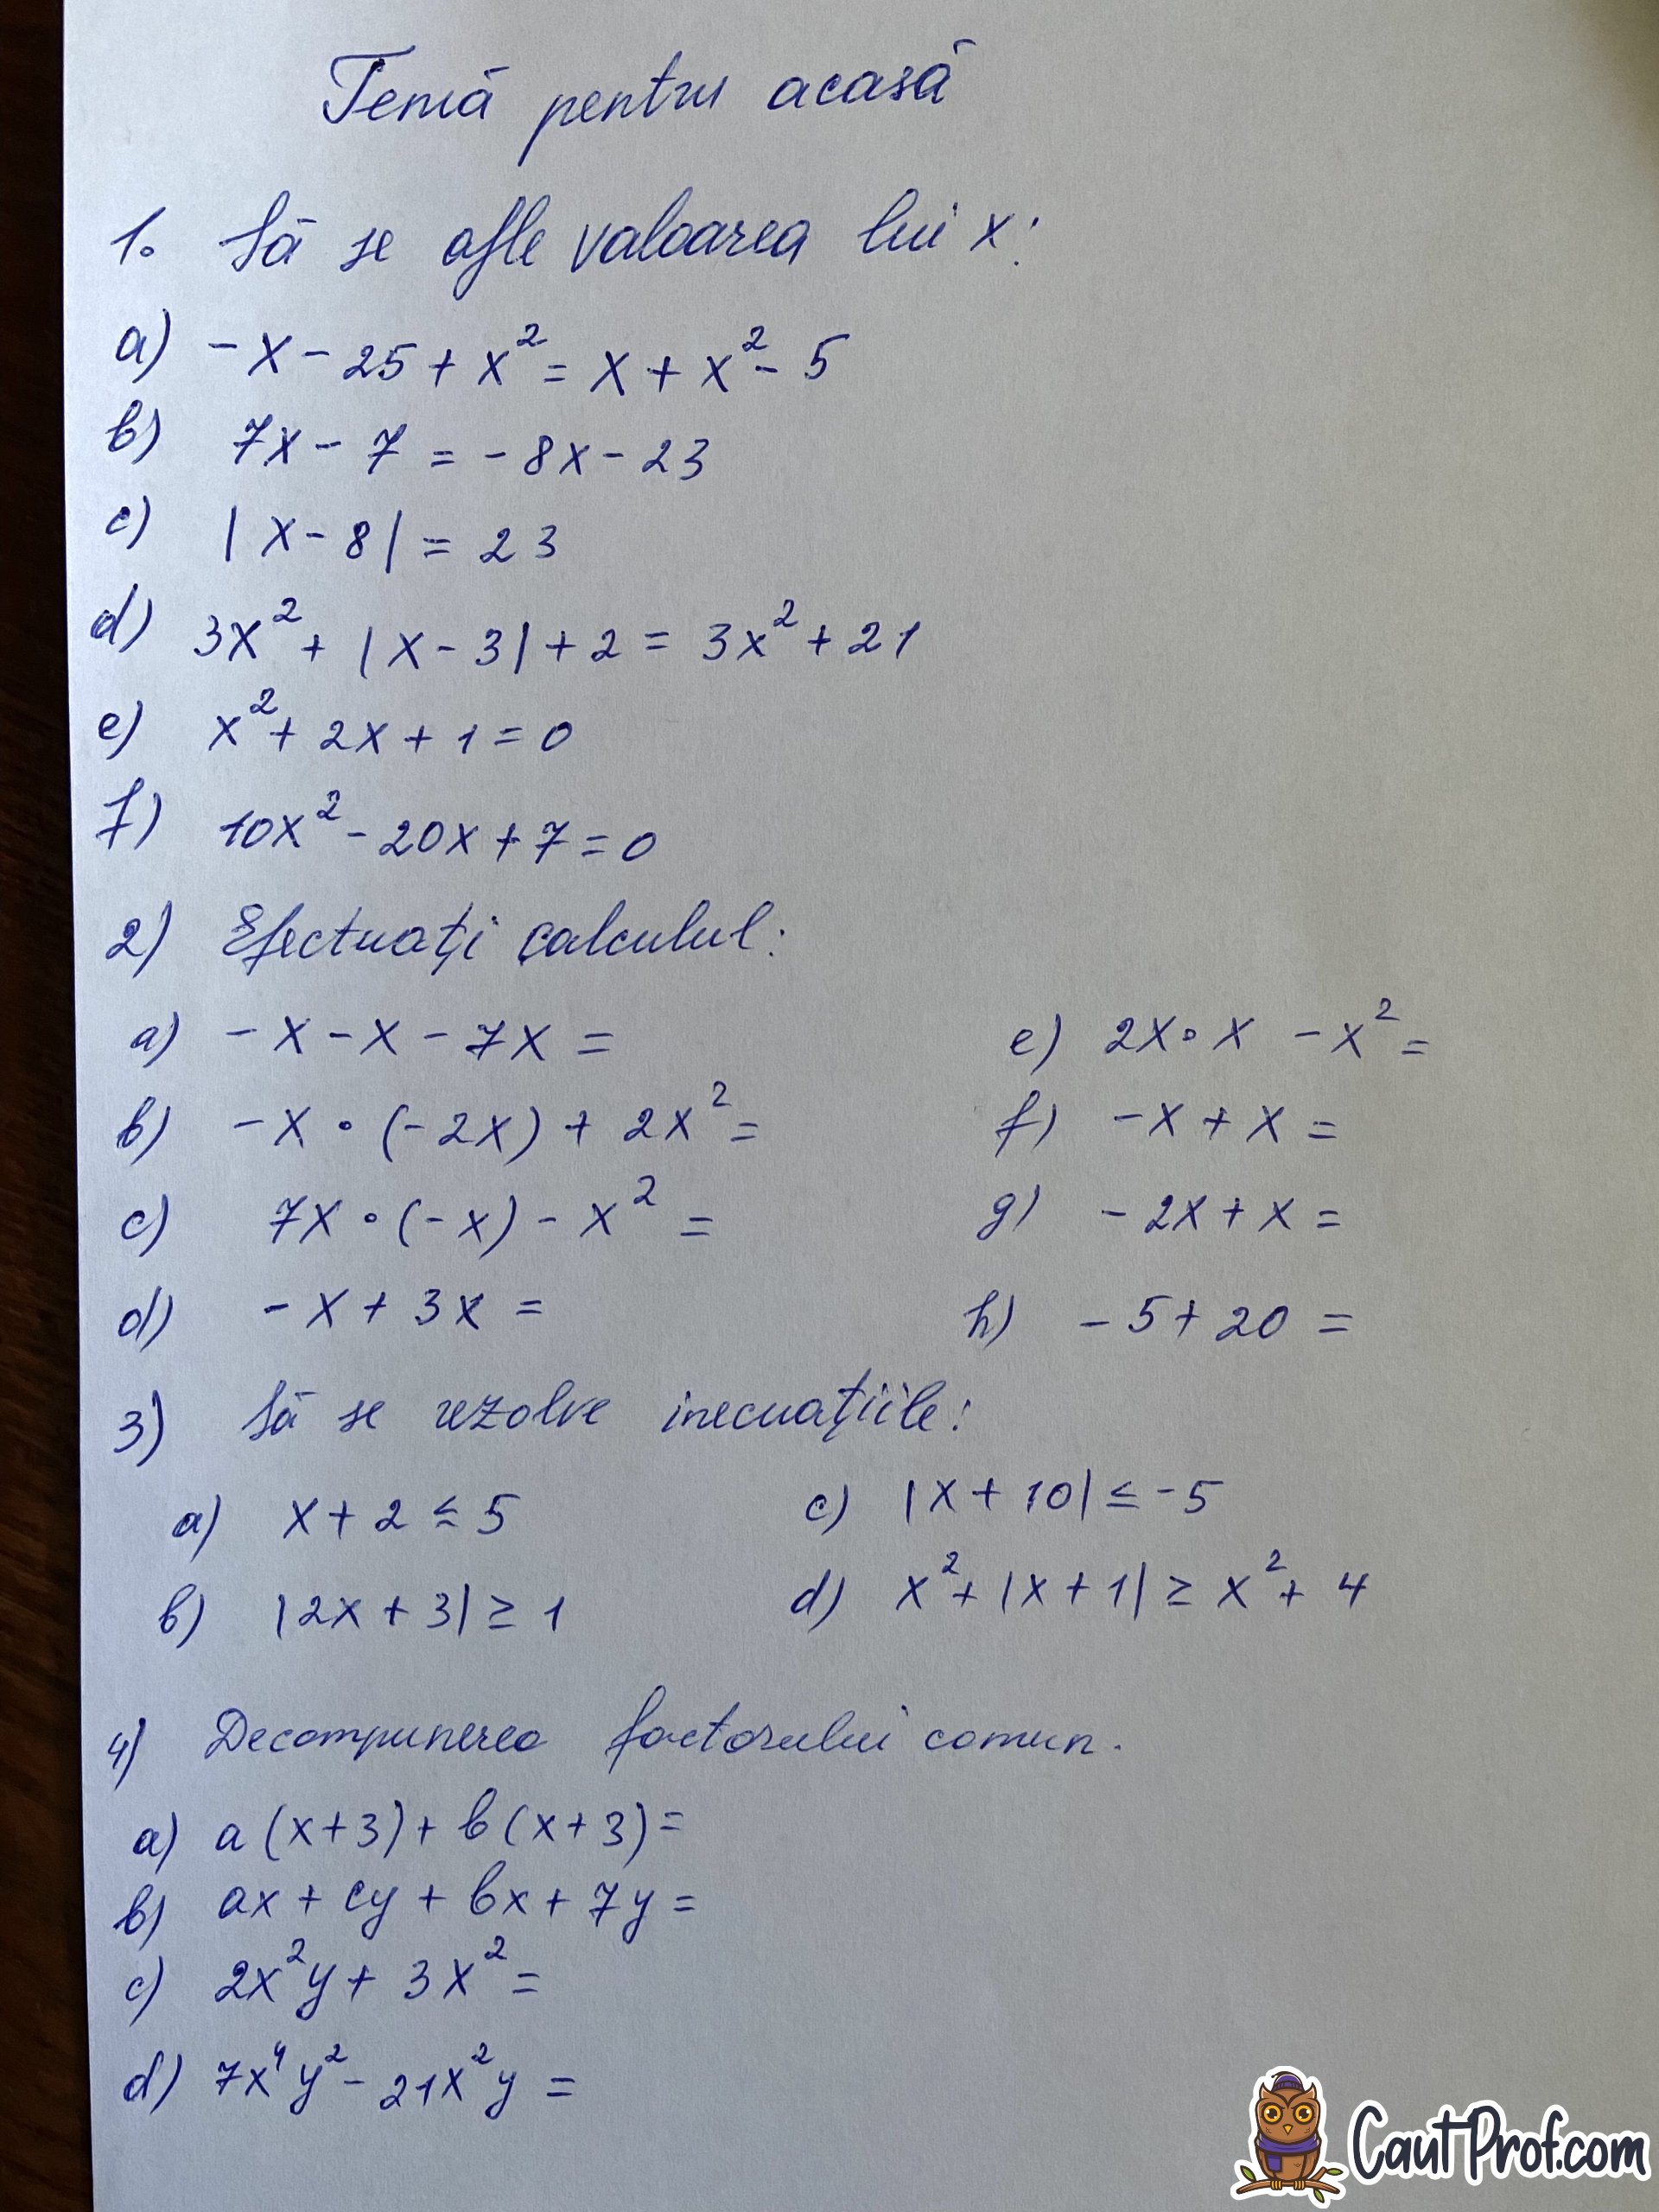 Temă pentru acasă
1. Să se afle valoarea lui x:
a) -x - 25 + x² = x + x² - 5
b) 7x - 7 = -8x - 23
c) |x - 8| = 23
d) 3x² + |x - 3| + 2 = 3x² + 21
e) x² + 2x + 1 = 0
f) 10x² - 20x + 7 = 0
2) Efectuați calculul:
a) -x - x - 7x =
b) -x · (-2x) + 2x² =
c) 7x · (-x) - x² =
d) -x + 3x =
e) 2x · x - x² =
f) -x + x =
g) -2x + x =
h) -5 + 20 =
3) Să se rezolve inecuațiile:
a) x + 2 ≤ 5
b) |2x + 3| ≥ 1
c) |x + 10| ≤ -5
d) x² + |x + 1| ≥ x² + 4
4) Decompunerea factorului comun.
a) a(x+3) + b(x+3) =
b) ax + cy + bx + 7y =
c) 2x²y + 3x² =
d) 7x⁴y² - 21x²y =
CautProf.com